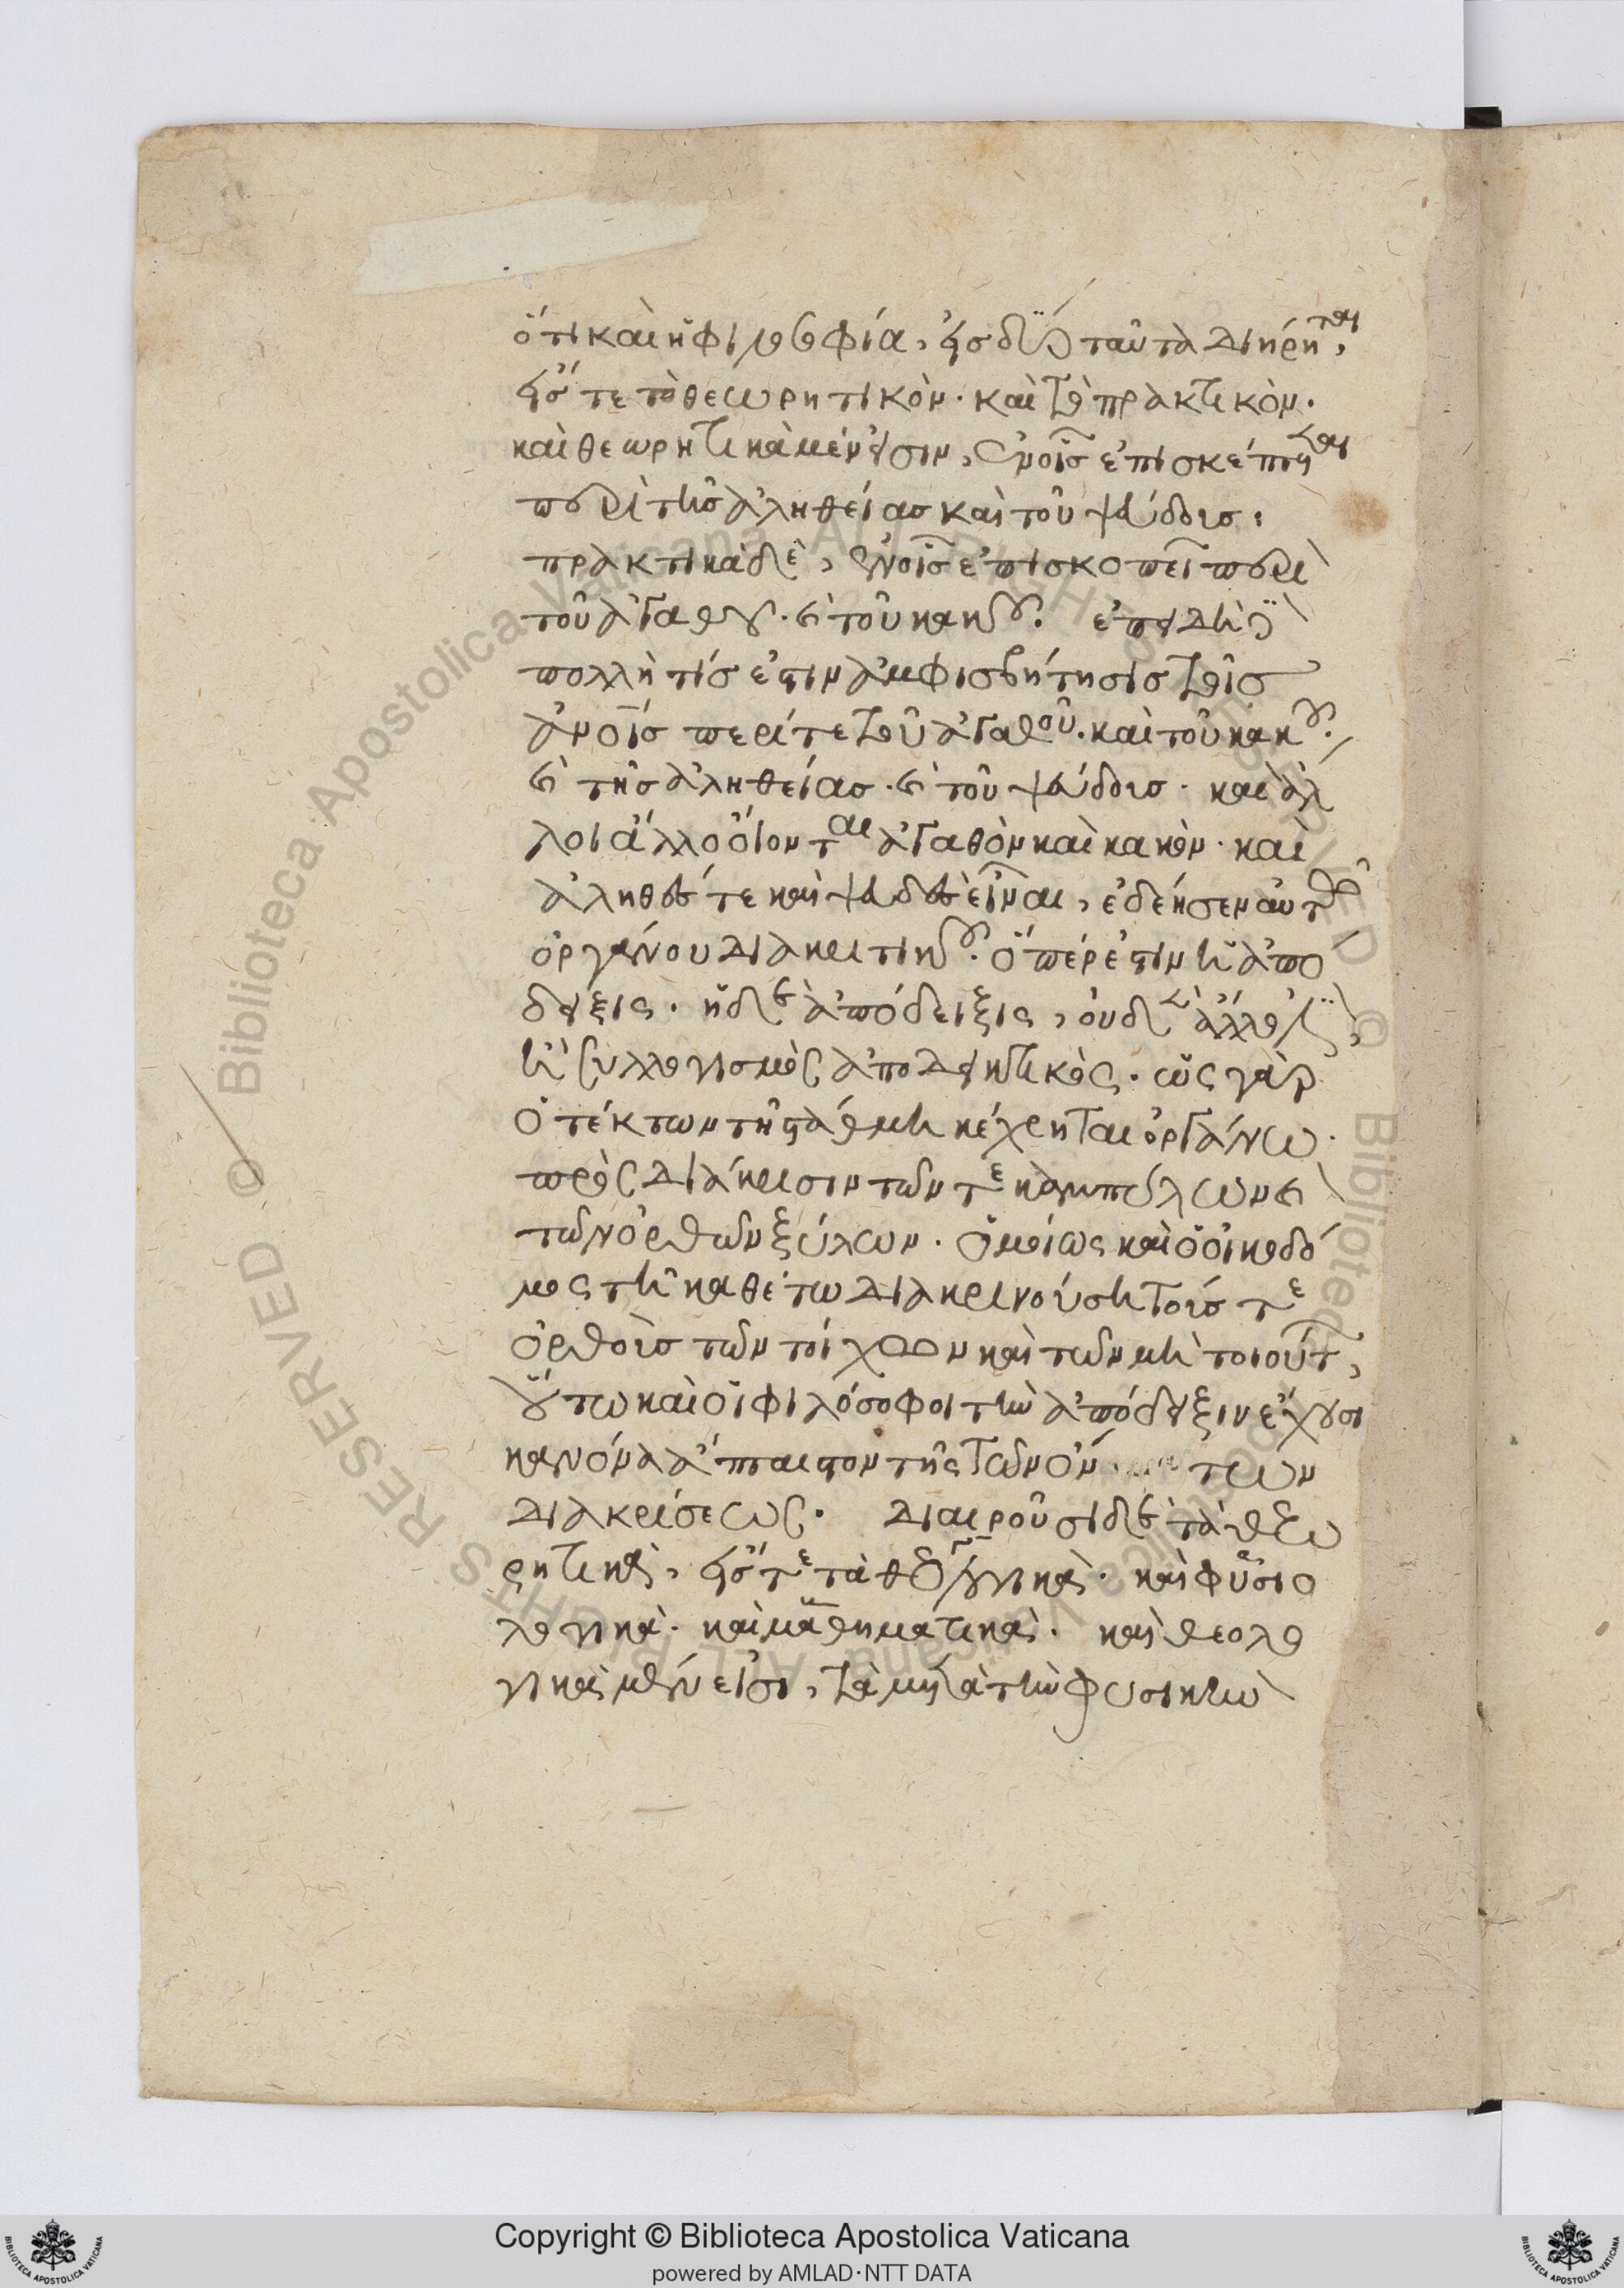 ὅτι καὶ ἡ φιλοσοφία, εἰς δύο ταῦτα διήρηται,
εἴς τε τὸ θεωρητικὸν· καὶ τὸ πρακτικὸν·
καὶ θεωρητικὰ μέν εἰσιν, ἐν οἷς ἐπισκέπτεται
περὶ τῆς ἀληθείας καὶ τοῦ ψεύδους·
πρακτικὰ δὲ, ἐν οἷς ἐπισκοπεῖ περὶ
τοῦ ἀγαθοῦ· καὶ τοῦ κακοῦ. ἐπειδὴ
πολλή τίς ἐστιν ἀμφισβήτησις τοῖς
ἀνοις περί τε τοῦ ἀγαθοῦ· καὶ τοῦ κακοῦ.
καὶ τῆς ἀληθείας· καὶ τοῦ ψεύδους· καὶ ἄλ
λοι ἄλλο οἴονται ἀγαθὸν καὶ κακὸν· καὶ
ἀληθές τε καὶ ψευδὲς εἶναι, ἐδέησεν αὐτοῖς
ὀργάνου διακριτικοῦ. ὅπέρ ἐστιν ἡ ἀπό
δειξις· ἡ δὲ ἀπόδειξις, οὐδὲν ἄλλο ἐστὶν
ἢ συλλογισμὸς ἀποδεικτικὸς· ὡς γὰρ
ὁ τέκτων τῆ στάθμη κέχρηται ὀργάνω·
πρὸς διάκρισιν τῶν τε καμπύλων καὶ
τῶν ὀρθῶν ξύλων· ὁμοίως καὶ ὁ οἰκοδό
μος τῆ καθέτω διακρινούση τούς τε
ὀρθοὺς τῶν τοίχων καὶ τῶν μὴ τοιούτ,
οὕτω καὶ οἱ φιλόσοφοι τὴν ἀπόδειξιν ἔχουσι
κανόνα ἄπταιστον τῆς τῶν ὄν των
διακρίσεως· διαιροῦσι δὲ τὰ θεω
ρητικὰ, εἴς τε τὰ θεολογικὰ· καὶ φυσιο
λογικὰ· καὶ μαθηματικὰ· καὶ θεολο
γικὰ μέν εἰσι, τὰ μετὰ τὴν φυσικὴν
Copyright © Biblioteca Apostolica Vaticana
powered by AMLAD·NTT DATA